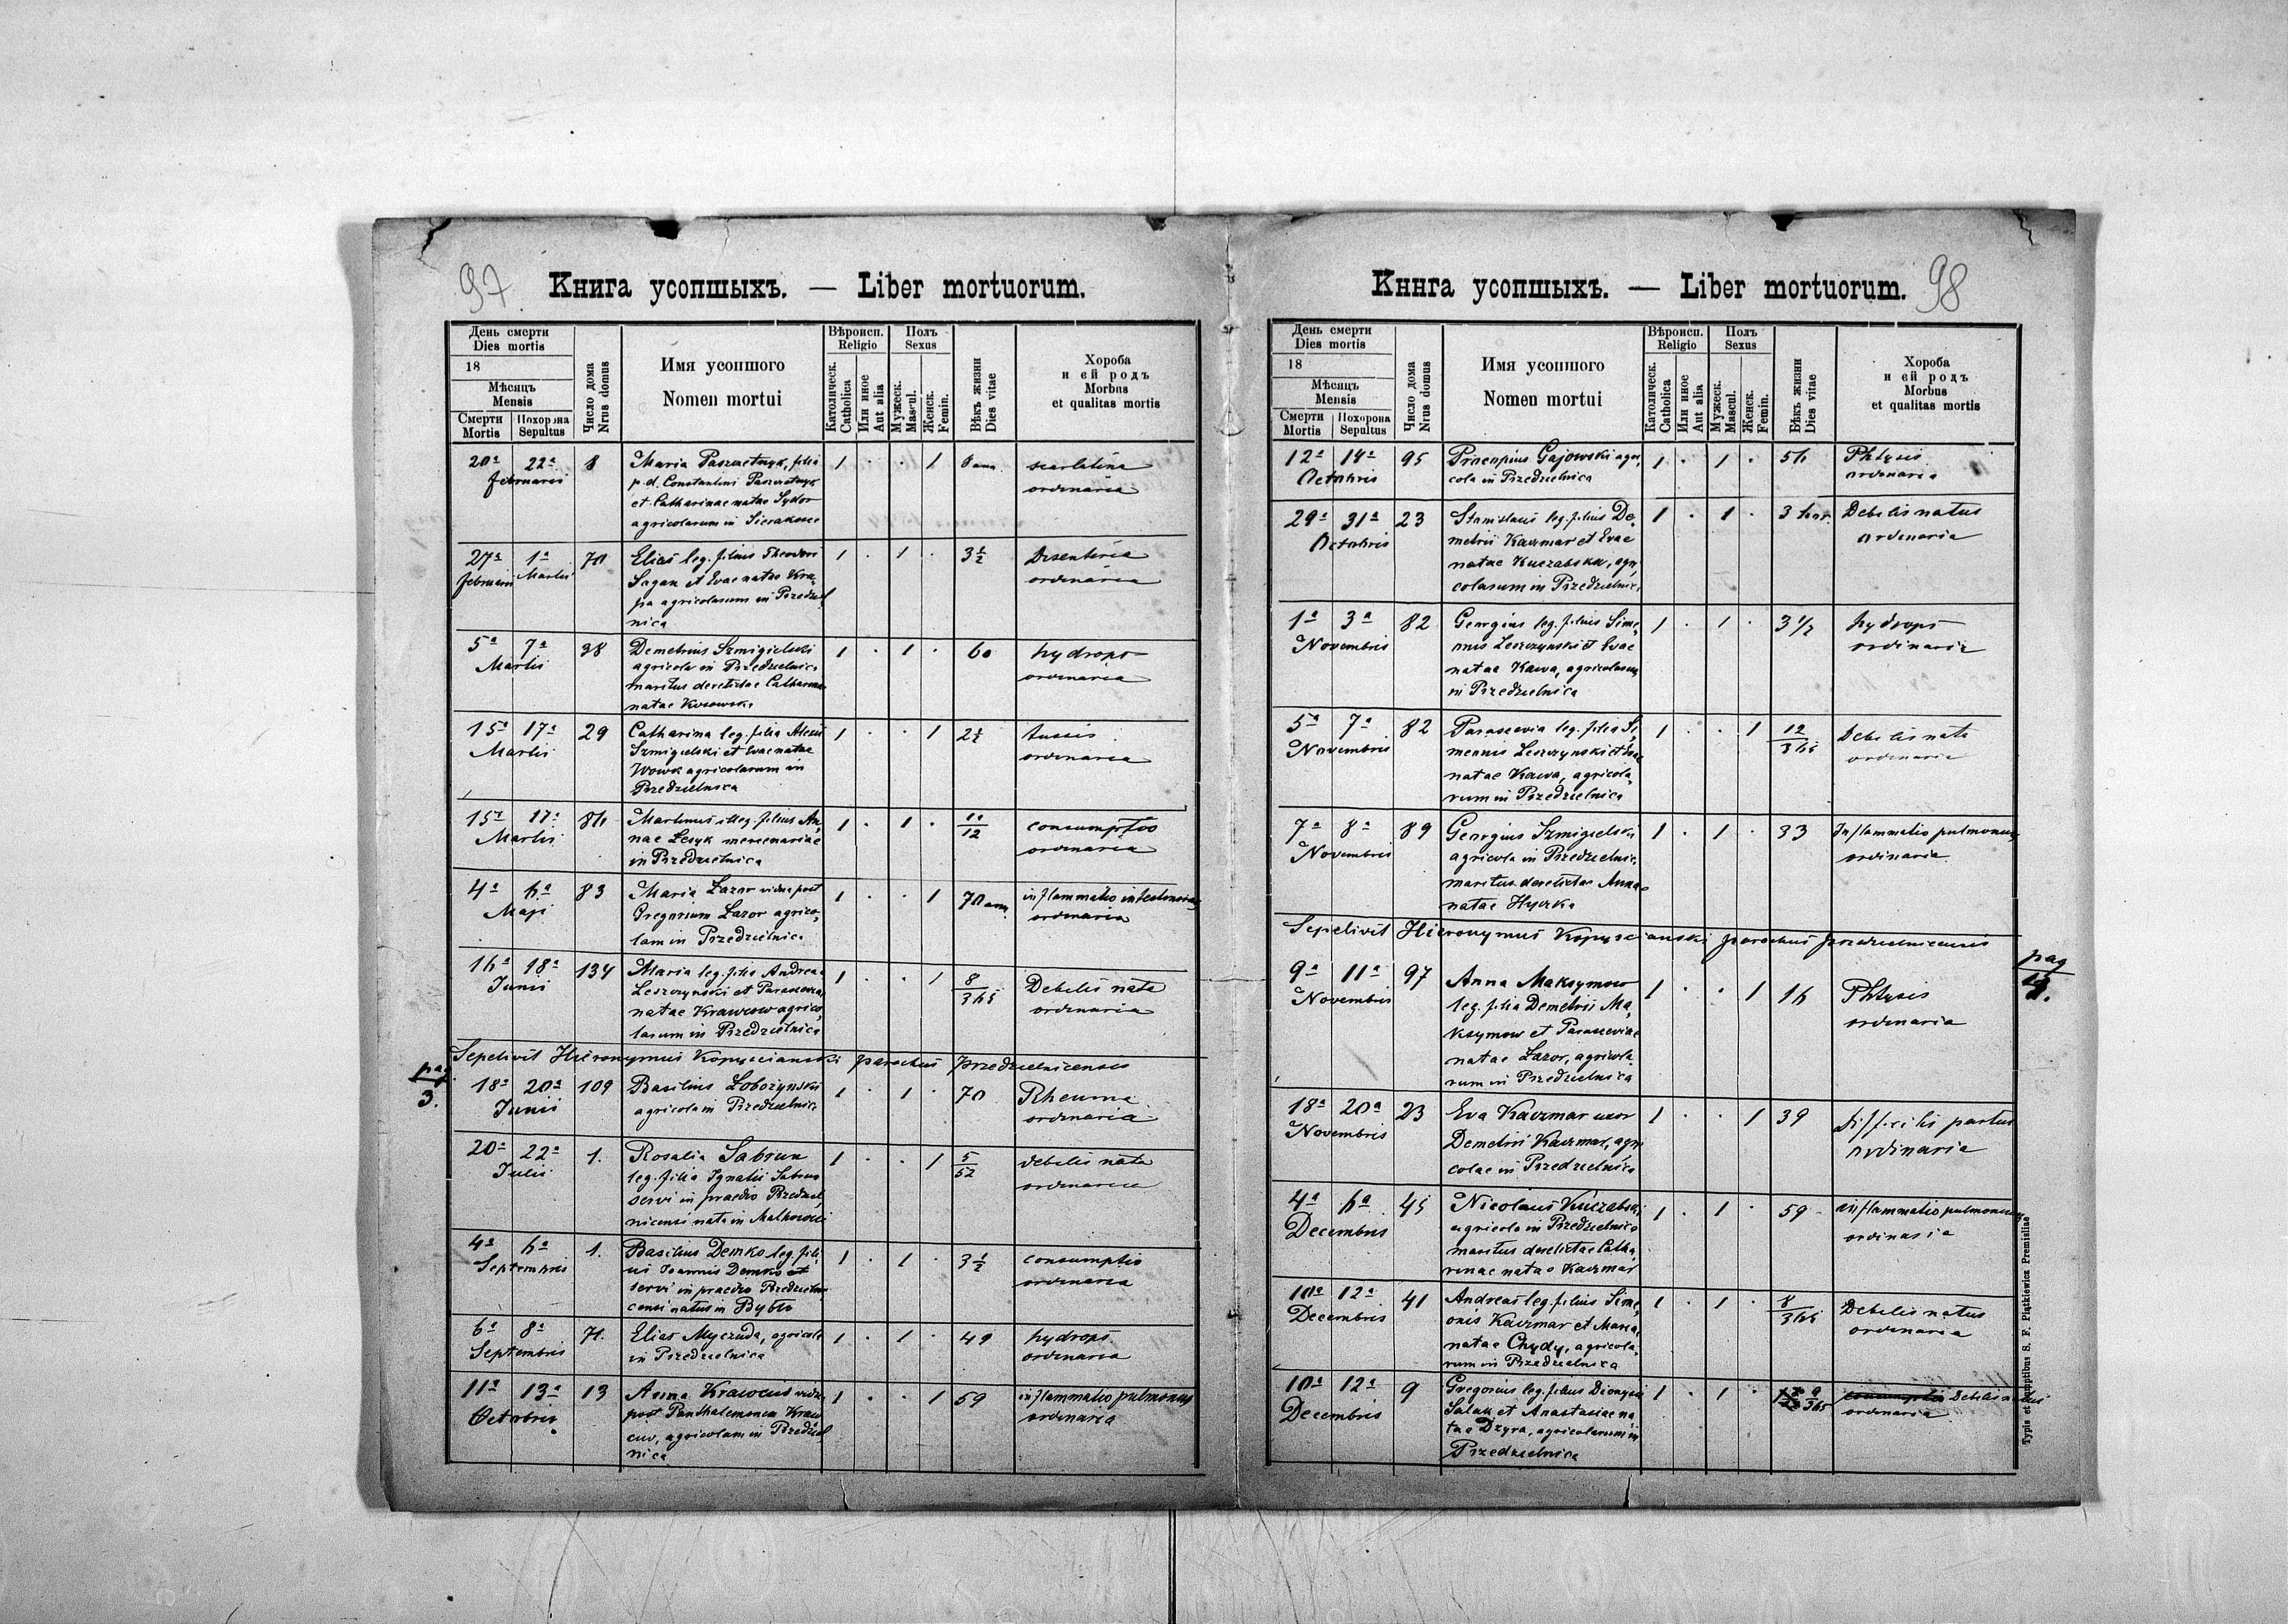 97
Книга усопшыхъ. — Liber mortuorum.
День смерти
Dies mortis
18
Мѣсяцъ
Mensis
Смерти
Mortis
Похорона
Sepultus
Число дома
Nrus domus
Имя усопшого
Nomen mortui
Вѣроисп.
Religio
Католическ.
Catholica
Или иное
Aut alia
Полъ
Sexus
Мужеск.
Mascul.
Женск.
Femin.
Вѣкъ жизни
Dies vitae
Хороба
и ей родъ
Morbus
et qualitas mortis
20ª 22ª 8 Maria Paszczetnyk, filia 1 . . 1 scarlatina
februarii p. d. Constantini Paszczetnyk ordinaria
et Catharinae natae Sydor
agricolarum in Sierakosce
27ª 1ª 70 Elias leg. filius Theodori 1 . 1 . 3 1/2 Disenteria
februarii Martii Sagan et Evae natae Kra ordinaria
pa agricolarum in Przedziel
nica
5ª 7ª 38 Demetrius Szmigielski 1 . 1 . 60 hydrops
Martii agricola in Przedzielnica ordinaria
maritus derelictae Catharinae
natae Kosowska
15ª 17ª 29 Catharina leg. filia Alexii 1 . . 1 2 1/2 tussis
Martii Szmigielski et Evae natae ordinaria
Wowk agricolarum in
Przedzielnica
15ª 17ª 86 Martinus illeg. filius An 1 . 1 . 11/12 consumptio
Martii nae Lesyk mercenariae ordinaria
in Przedzielnica
4ª 6ª 83 Maria Łazor vidua post 1 . . 1 70 ann. inflammatio intestinorum
Maji Gregorium Łazor agrico ordinaria
lam in Przedzielnica
16ª 18ª 134 Maria leg. filia Andreae 1 . . 1 8/365 Debilis nata
Junii Leszczynski et Parasceviae ordinaria
natae Krawciow agrico
larum in Przedzielnica
Sepelivit Hieronymus Kopyscianski parochus przedzielnicensis
pag
3.
18ª 20ª 109 Basilius Łobozynski 1 . 1 . 70 Rheuma
Junii agricola in Przedzielnica ordinaria
20ª 22ª 1. Rosalia Sabrun 1 . . 1 5/52 debilis nata
Julii leg. filia Ignatii Sabrun ordinaria
servi in praedio Przedziel
nicensi nata in Malhowice
4ª 6ª 1. Basilius Demko leg. fili 1 . 1 . 3 1/2 consumptio
Septembris us Joannis Demko et ordinaria
servi in praedio Przedzielni
censi natus in Bybło
6ª 8ª 71. Elias Myczuda, agricola 1 . 1 . 49 hydrops
Septembris in Przedzielnica ordinaria
11ª 13ª 13 Anna Krawciw vidua 1 . . 1 59 inflammatio pulmonum
Octobris post Panthalemonem Kraw ordinaria
ciw, agricolam in Przedziel
nica
98
Кннга усопшыхъ. — Liber mortuorum.
День смерти
Dies mortis
18
Мѣсяцъ
Mensis
Смерти
Mortis
Похорона
Sepultus
Число дома
Nrus domus
Имя усопшого
Nomen mortui
Вѣроисп.
Religio
Католическ.
Catholica
Или иное
Aut alia
Полъ
Sexus
Мужеск.
Mascul.
Женск.
Femin.
Вѣкъ жизни
Dies vitae
Хороба
и ей родъ
Morbus
et qualitas mortis
12ª 14ª 95 Procopius Gajowski agri 1 . 1 . 56 Phtysis
Octobris cola in Przedzielnica ordinaria
29ª 31ª 23 Stanislaus leg. filius De 1 . 1 . 3 hor. Debilis natus
Octobris metrii Kaczmar et Evae ordinaria
natae Kuczabska, agri
colarum in Przedzielnica
1ª 3ª 82 Georgius leg. filius Sime 1 . 1 . 3 1/2 hydrops
Novembris onis Leszczynski et Evae ordinaria
natae Kawa, agricolarum
in Przedzielnica
5ª 7ª 82 Parascevia leg. filia Si 1 . . 1 12/365 Debilis nata
Novembris meonis Leszczynski et Evae ordinaria
natae Kawa, agricola
rum in Przedzielnica
7ª 8ª 89 Georgius Szmigielski 1 . 1 . 33 Inflammatio pulmonum
Novembris agricola in Przedzielnica ordinaria
maritus derelictae Annae
natae Hyczka
Sepelivit Hieronymus Kopyscianski parochus przedzielnicensis
pag
9ª 11ª 97 Anna Maksymow 1 . . 1 16 Phtysis
Novembris leg. filia Demetrii Ma ordinaria
ksymow et Parasceviae
natae Łazor, agricola
rum in Przedzielnica
18ª 20ª 23 Eva Kaczmar uxor 1 . . 1 39 difficilis partus
Novembris Demetrii Kaczmar, agri ordinaria
colae in Przedzielnica
4ª 6ª 45 Nicolaus Kuczabski 1 . 1 . 59 inflammatio pulmonum
Decembris agricola in Przedzielnica ordinaria
maritus derelictae Catha
rinae natae Kaczmar
10ª 12ª 41 Andreas leg. filius Sime 1 . 1 . 8/365 Debilis natus
Decembris onis Kaczmar et Maria ordinaria
natae Chydy, agricola
rum in Przedzielnica
10ª 12ª 9 Gregorius leg. filius Dionysii 1 . 1 . 9/365 Debilis natus
Decembris Salak et Anastasiae na ordinaria
tae Dzyra, agricolarum in
Przedzielnica
Typis et sumptibus S. F. Piątkiewicz Premisliae